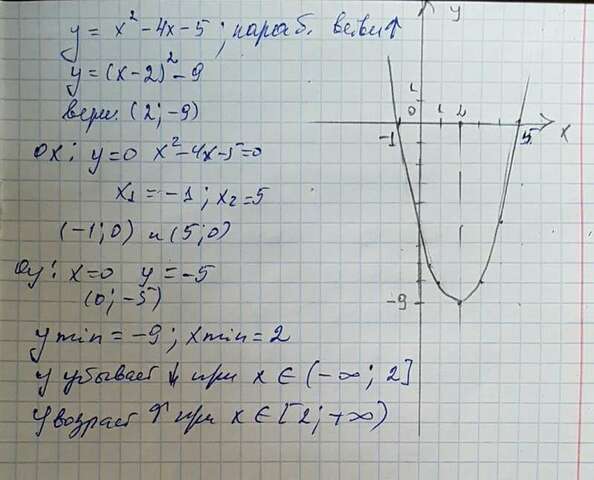 y = x² - 4x - 5 ; параб. ветви↑
y = (x - 2)² - 9
верш. (2; -9)
OX: y=0 x² - 4x - 5 = 0
x₁ = -1 ; x₂ = 5
(-1; 0) и (5; 0)
Oy: x=0 y = -5
(0; -5)
y min = -9 ; x min = 2
y убывает ↓ при x ∈ (-∞; 2]
y возраст ↑ при x ∈ [2; +∞)
y
1
0 1 2
-1 5 x
-9